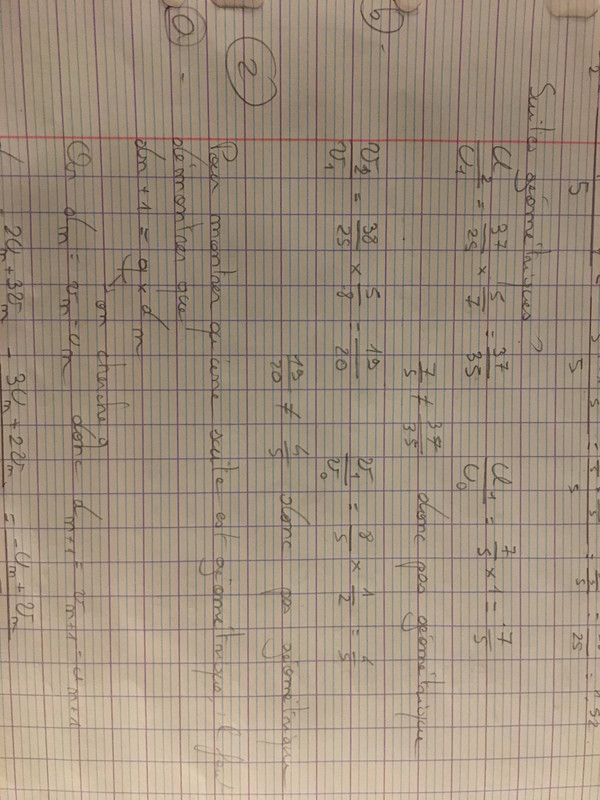 Suites géométriques ?
U2/U1 = 37/25 × 5/7 = 37/35 U1/U0 = 7/5 × 1 = 7/5
7/5 ≠ 37/35 donc pas géométrique
b -
v2/v1 = 38/25 × 5/8 = 19/20 v1/v0 = 8/5 × 1/2 = 4/5
19/20 ≠ 4/5 donc pas géométrique
2
a -
Pour montrer qu'une suite est géométrique, il faut
démontrer que
dm+1 = q × dm
on cherche q
On dm = vm - um donc dm+1 = vm+1 - um+1
2Um + 3vm - 3Um + 2vm = -Um + vm